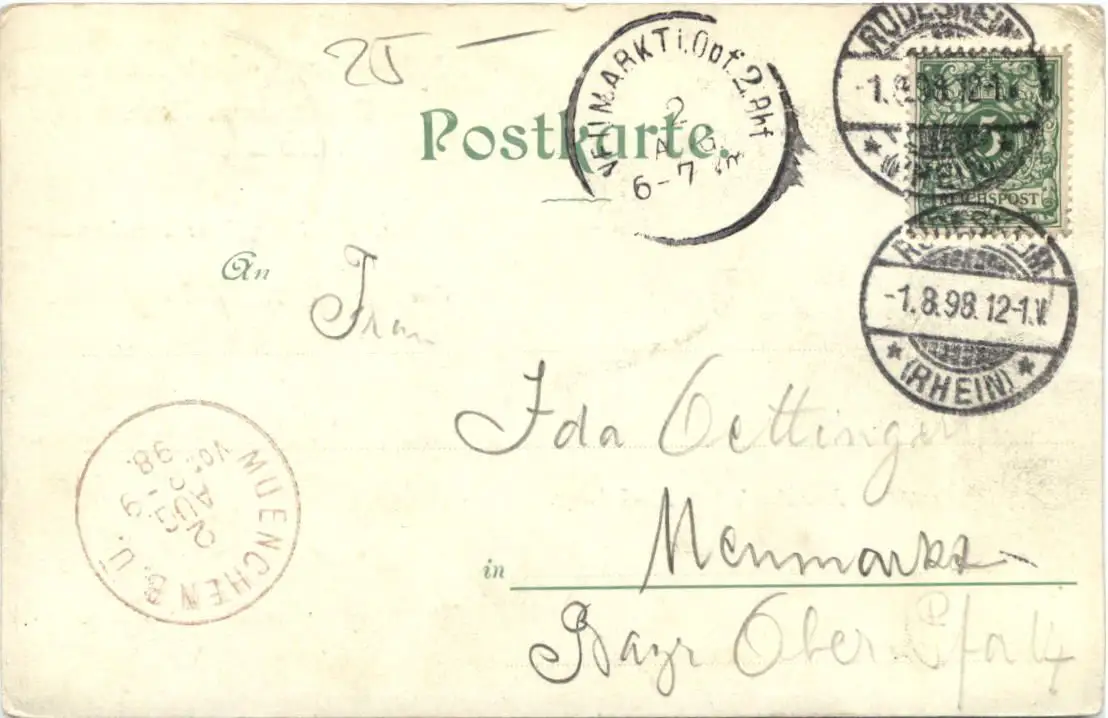 25 —
Postkarte.
NEUMARKT i. Opf. 2. Bhf
2
6-7 Vm
RÜDESHEIM
-1.8.98.12-1.V.
* (RHEIN) *
5
REICHSPOST
RÜDESHEIM
-1.8.98.12-1.V.
* (RHEIN) *
An Frau
Ida Oettinger
MUENCHEN B. U.
2 AUG
Vor
98.
in Neumarkt
Bayr Ober Pfalz